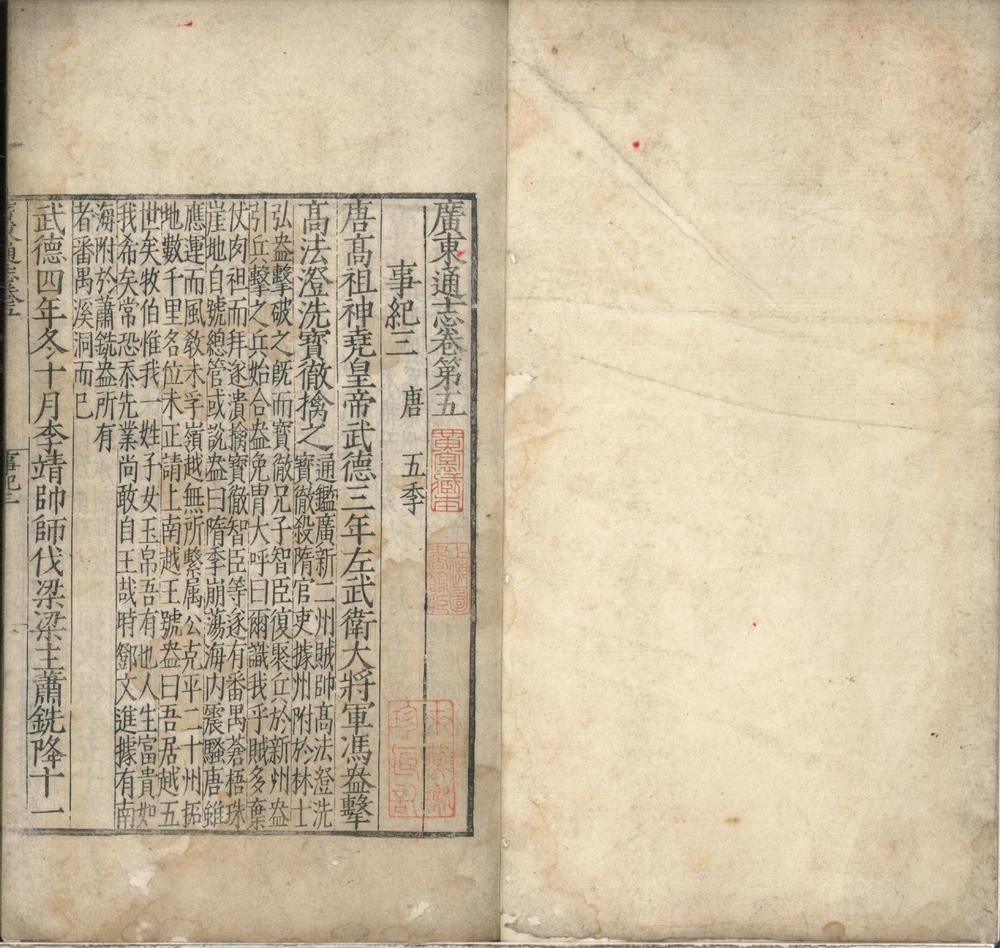 廣東通志卷第五
事紀三 唐 五季
唐髙祖神堯皇帝武德三年左武衛大將軍馮盎擊
髙法澄洗寶徹擒之
通鑑廣新二州賊帥髙法澄洗
寶徹殺隋官吏據州附於林士
弘盎擊破之旣而寶徹兄子智臣復聚兵於新州盎
引兵擊之兵始合盎免冑大呼曰爾識我乎賊多棄
仗肉袒而拜遂潰擒寶徹智臣等遂有番禺蒼梧珠
崖地自號總管或説盎曰隋季崩蕩海内震騷唐雖
應運而風敎未孚嶺越無所繫属公克平二十州拓
地數千里名位未正請上南越王號盎曰吾居越五
世矣牧伯惟我一姓子女玉帛吾有也人生富貴如
我希矣常恐忝先業尚敢自王哉時鄧文進據有南
海附於蕭銑盎所有
者番禺溪洞而已
武德四年冬十月李靖帥師伐梁梁主蕭銑降十一
事紀三